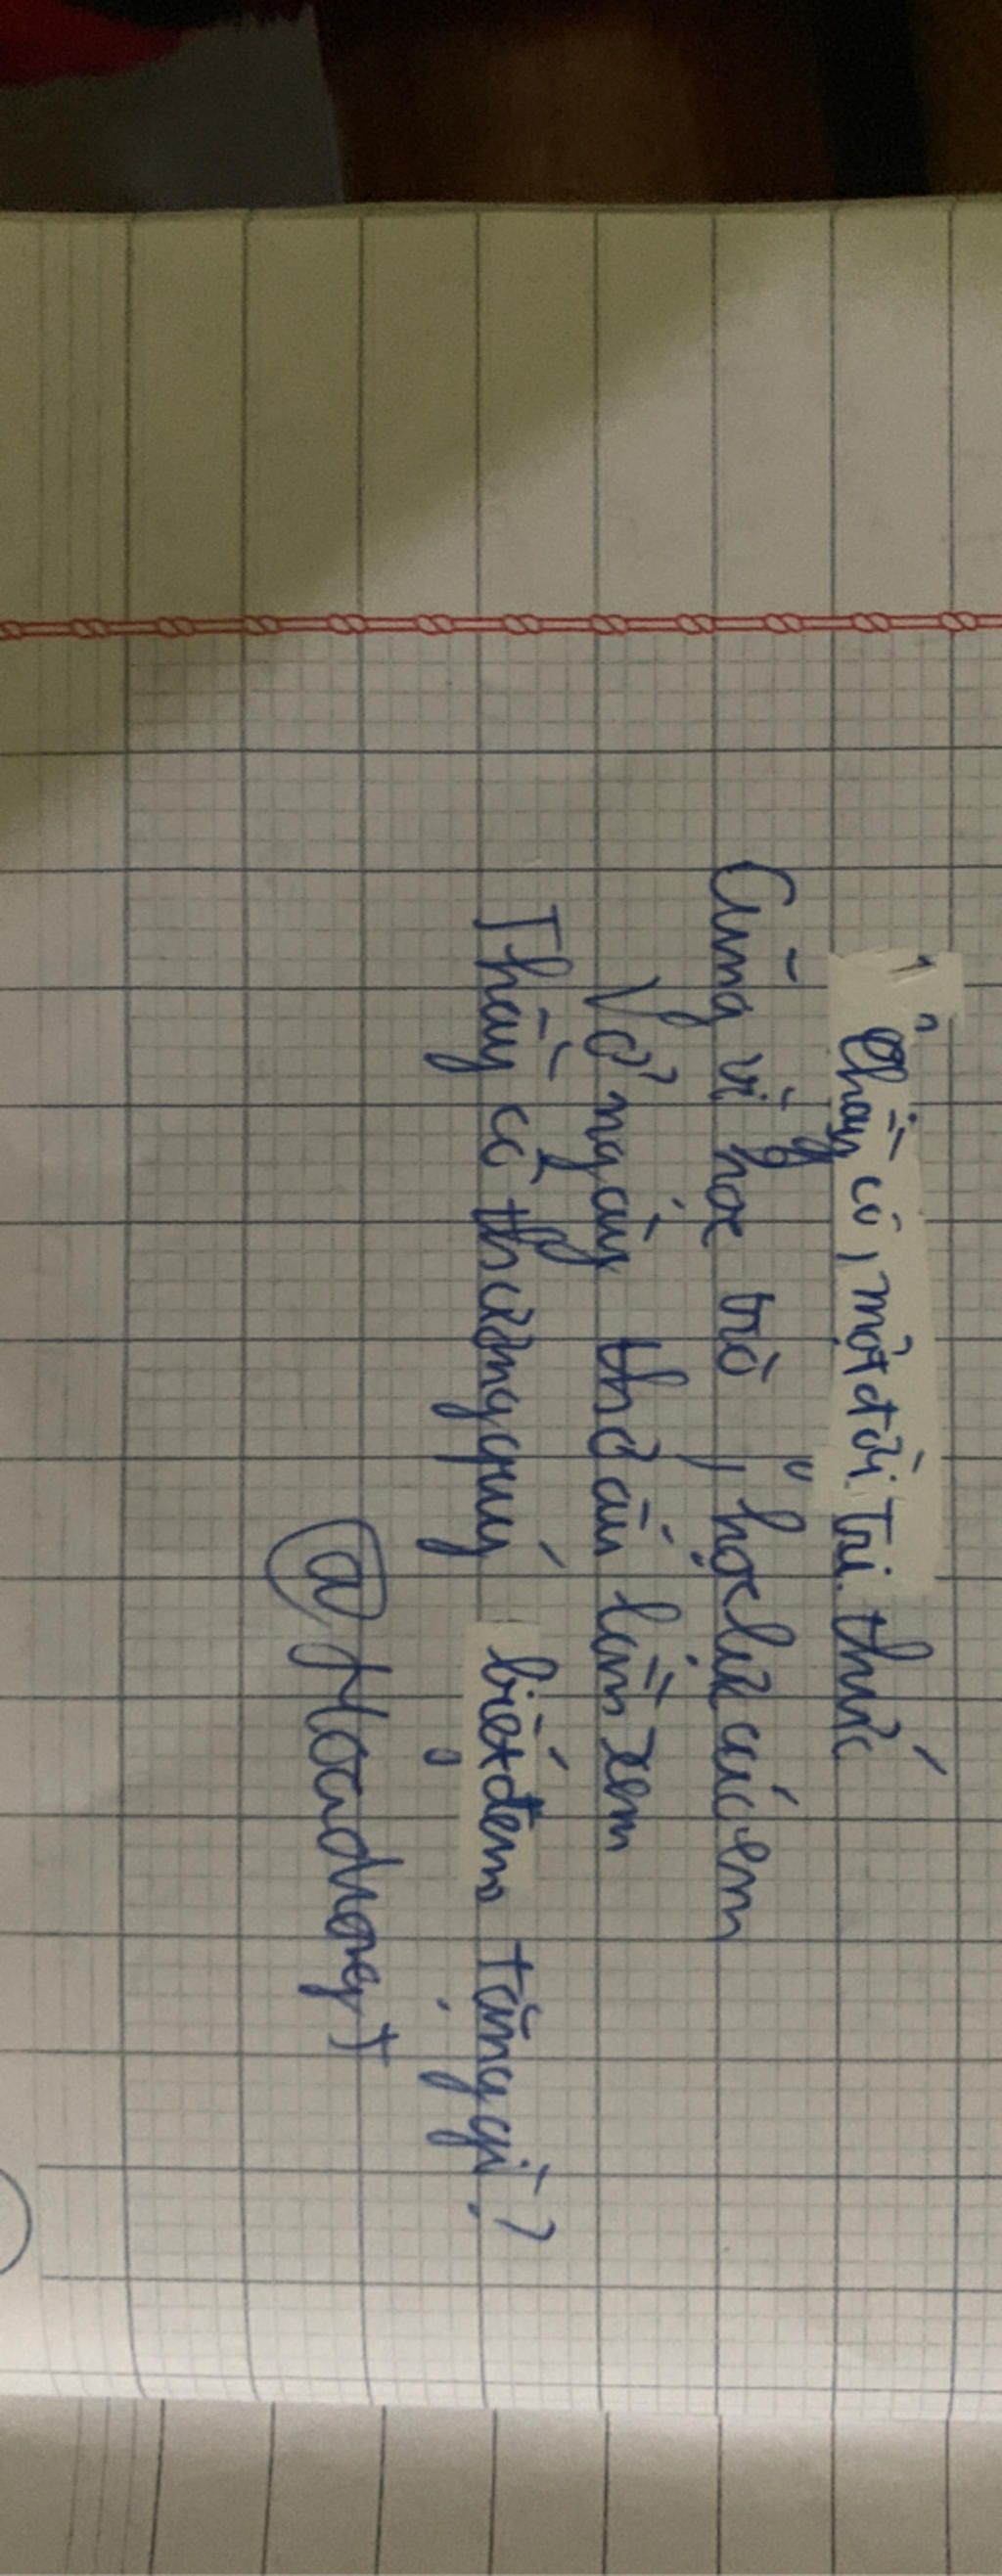 " Thầy cô, một đời. Tri thức
Cũng vì học trò, " học lực các em
Vở ngày thơ ấu lần xem
Thầy cô thương quý biết đem tặng gì?
@Hoadnogt